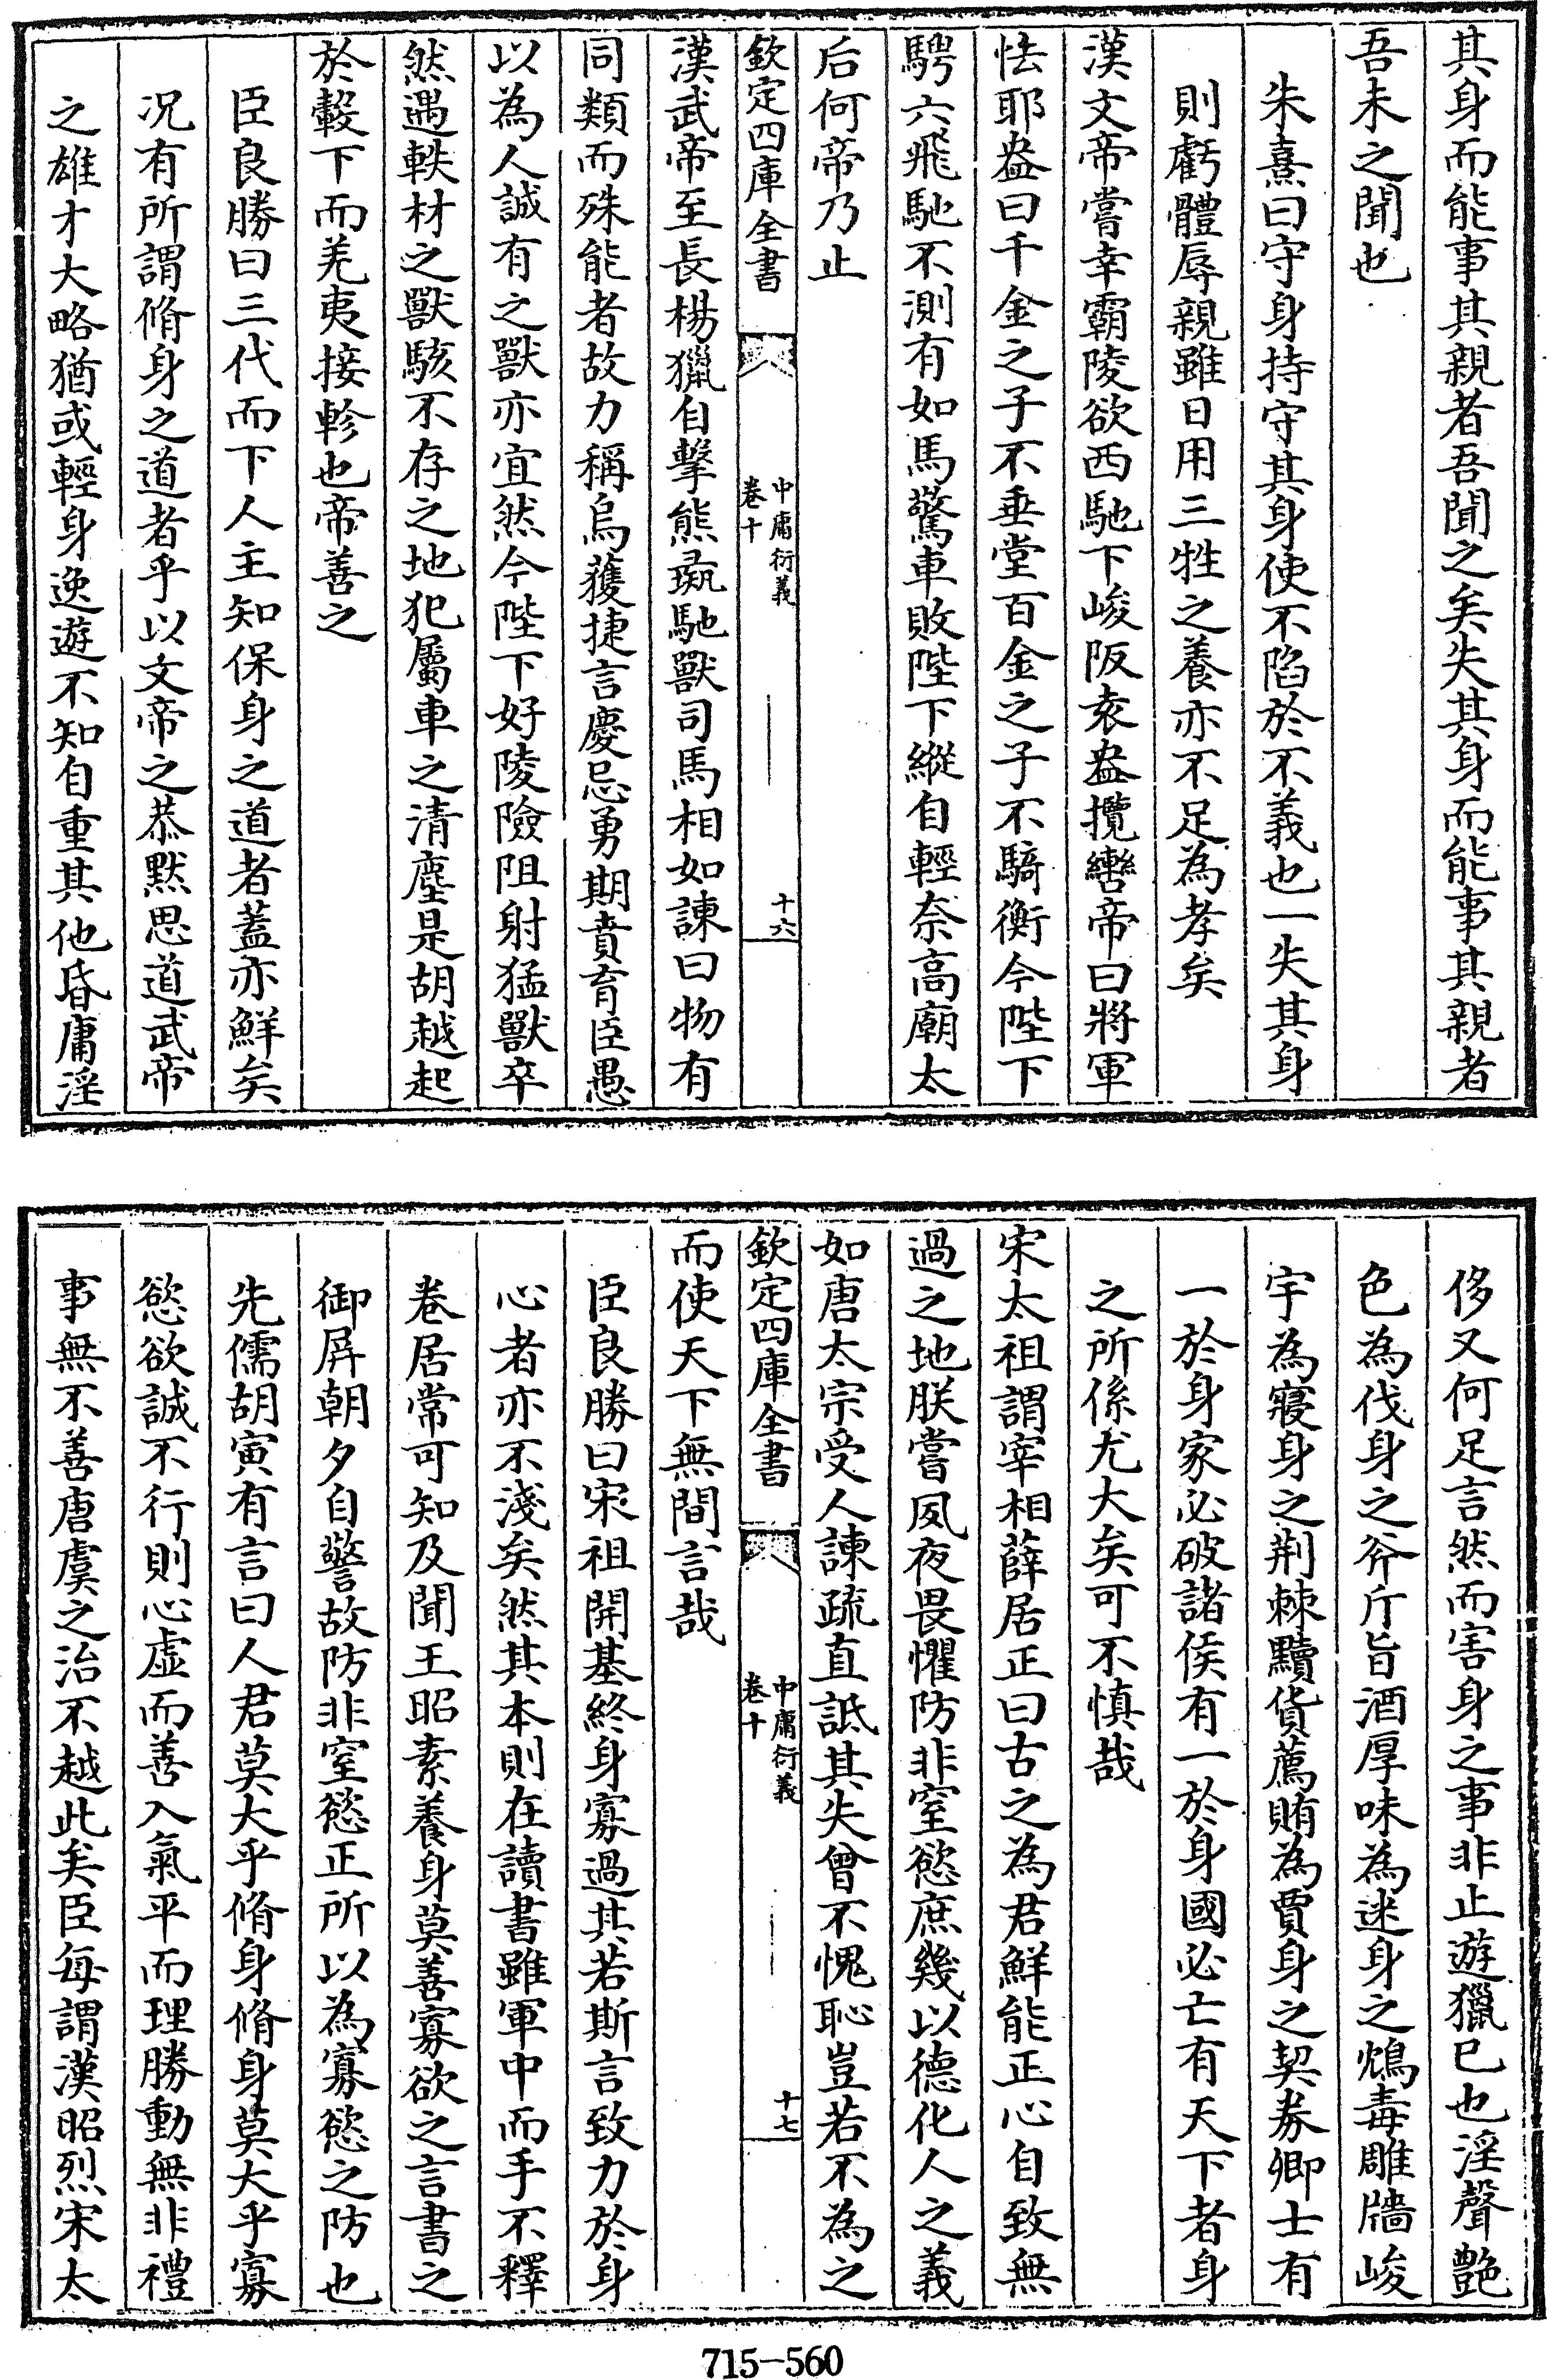 其身而能事其親者吾聞之矣失其身而能事其親者
吾未之聞也
朱熹曰守身持守其身使不陷於不義也一失其身
則虧體辱親雖日用三牲之養亦不足為孝矣
漢文帝嘗幸霸陵欲西馳下峻阪袁盎攬轡帝曰將軍
怯耶盎曰千金之子不垂堂百金之子不騎衡今陛下
騁六飛馳不測有如馬驚車敗陛下縱自輕奈高廟太
后何帝乃止
欽定四庫全書
中庸衍義
卷十
十六
漢武帝至長楊獵自擊熊彘馳獸司馬相如諫曰物有
同類而殊能者故力稱烏獲捷言慶忌勇期賁育臣愚
以為人誠有之獸亦宜然今陛下好陵險阻射猛獸卒
然遇軼材之獸駭不存之地犯屬車之清塵是胡越起
於轂下而羌夷接軫也帝善之
臣良勝曰三代而下人主知保身之道者蓋亦鮮矣
况有所謂脩身之道者乎以文帝之恭默思道武帝
之雄才大略猶或輕身逸遊不知自重其他昏庸淫
侈又何足言然而害身之事非止遊獵已也淫聲艷
色為伐身之斧斤旨酒厚味為迷身之鴆毒雕牆峻
宇為寢身之荆棘黷貨薦賄為賈身之契券卿士有
一於身家必破諸侯有一於身國必亡有天下者身
之所係尤大矣可不慎哉
宋太祖謂宰相薛居正曰古之為君鮮能正心自致無
過之地朕嘗夙夜畏懼防非窒慾庶幾以德化人之義
如唐太宗受人諫疏直詆其失曾不愧恥豈若不為之
欽定四庫全書
中庸衍義
卷十
十七
而使天下無間言哉
臣良勝曰宋祖開基終身寡過其若斯言致力於身
心者亦不淺矣然其本則在讀書雖軍中而手不釋
卷居常可知及聞王昭素養身莫善寡欲之言書之
御屏朝夕自警故防非窒慾正所以為寡慾之防也
先儒胡寅有言曰人君莫大乎脩身脩身莫大乎寡
慾欲誠不行則心虛而善入氣平而理勝動無非禮
事無不善唐虞之治不越此矣臣每謂漢昭烈宋太
715-560